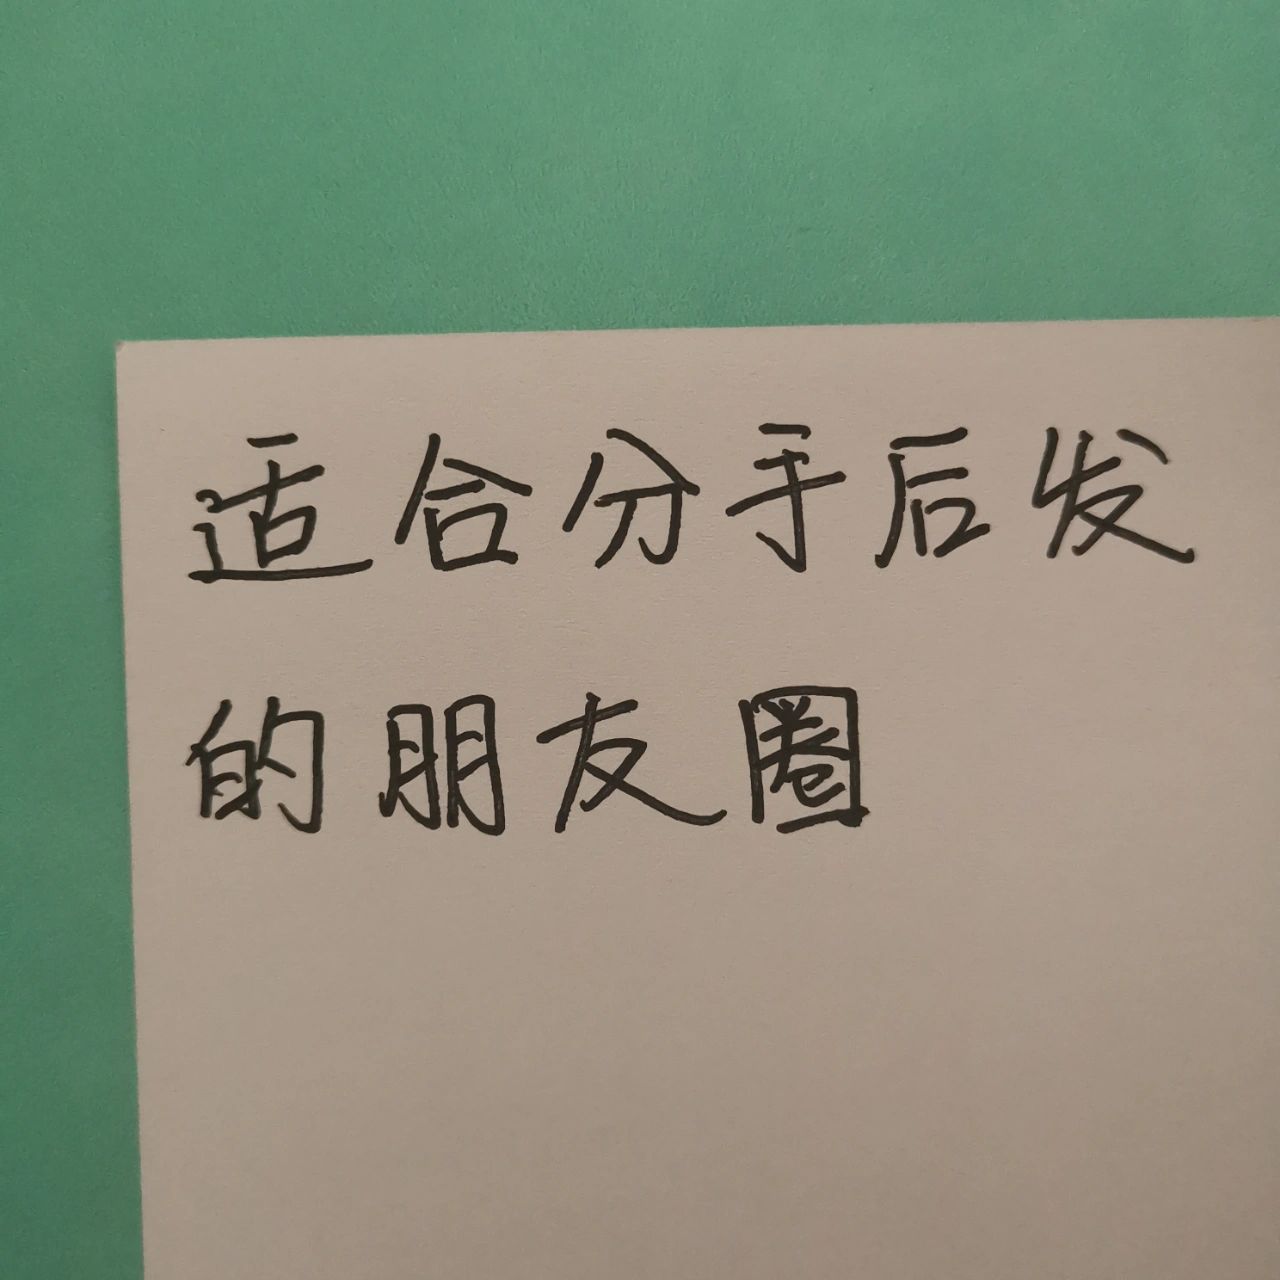 适合分手后发
的朋友圈